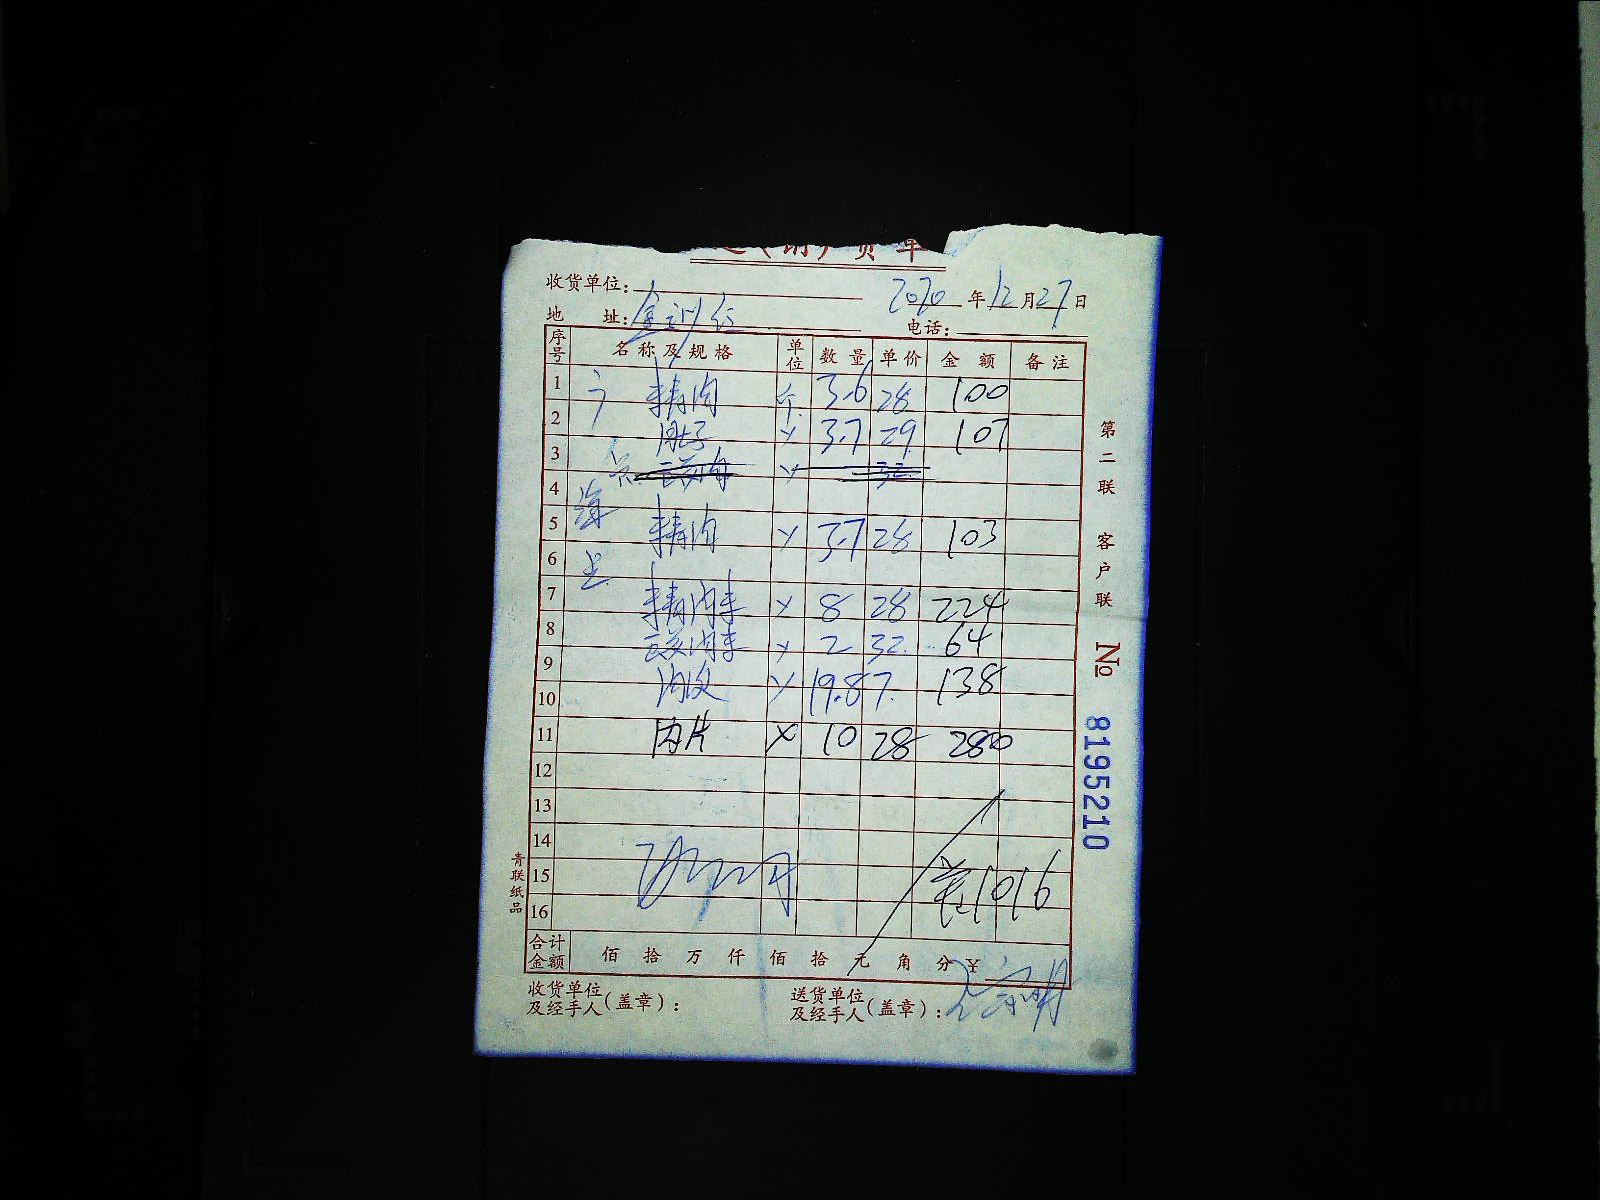 送(销)货单
收货单位:
2020年12月27日
地 址:金训红 电话:
序号 名称及规格 单位 数量 单价 金额 备注
1 精肉 斤 3.6 28 100
2 肉子 〃 3.7 29 107
3
4
5 精肉 〃 3.7 28 103
6
7 精肉末 〃 8 28 224
8 云肉末 〃 2 32 64
9 肉皮 〃 19.8 7 138
10
11 肉片 〃 10 28 280
12
13
14
15 1016
16
合计金额 佰 拾 万 仟 佰 拾 元 角 分 ¥
收货单位及经手人(盖章):
送货单位及经手人(盖章):
第二联 客户联
No 8195210
青联纸品